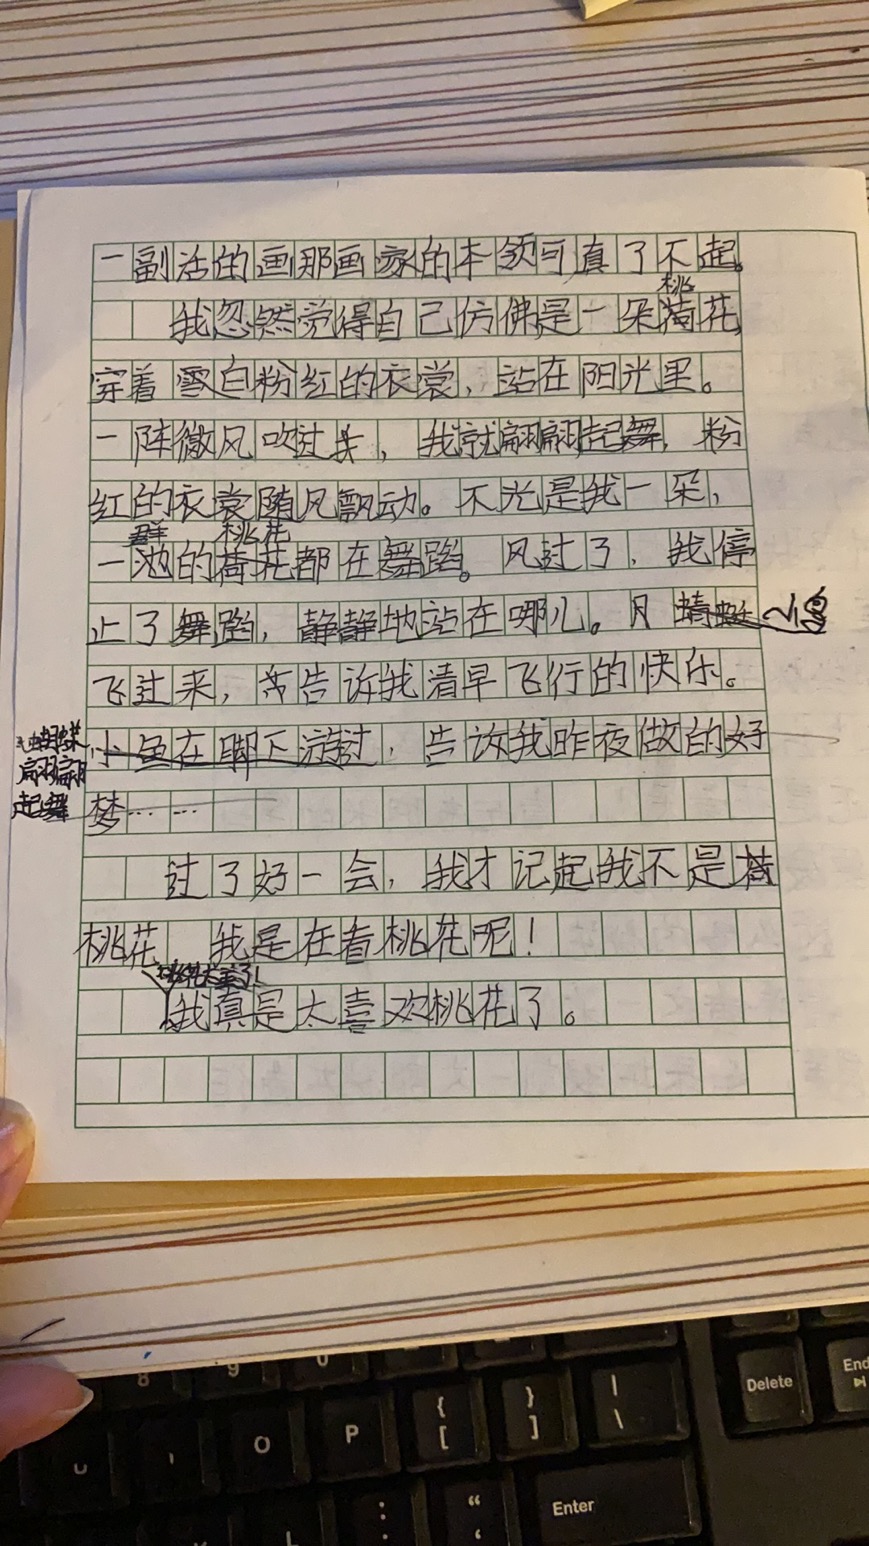 一副活的画那画家的本领可真了不起。
桃
我忽然觉得自己仿佛是一朵荷花,
穿着雪白粉红的衣裳，站在阳光里。
一阵微风吹过来，我就翩翩起舞，粉
红的衣裳随风飘动。不光是我一朵，
群 桃花
一池的荷花都在舞蹈。风过了，我停
止了舞蹈，静静地站在哪儿。月 蜻蜓 小鸟
飞过来，告诉我清早飞行的快乐。
小鱼在脚下游过，告诉我昨夜做的好
蝴蝶
翩翩
起舞
梦……
过了好一会，我才记起我不是荷
桃花 我是在看桃花呢！
桃花太美了！
我真是太喜欢桃花了。
8 9 0
O P { [ } ] | \ Delete End
: ; “ ‘ Enter